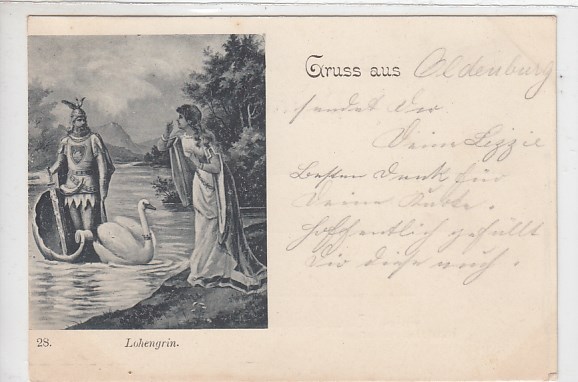 Gruss aus Oldenburg
sendet Dir
Deine Lizzie
Besten Dank für
Deine Karte.
Hoffentlich gefällt
Dir diese auch.
28. Lohengrin.